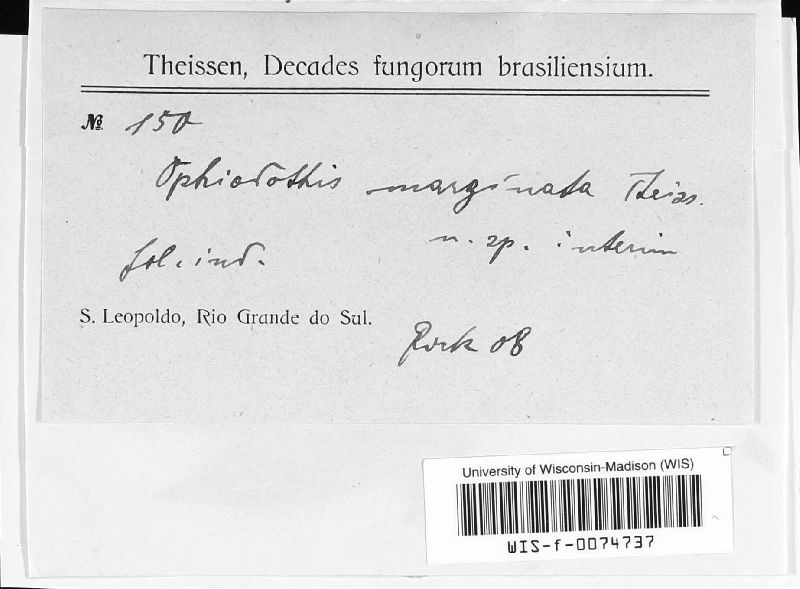 Theissen, Decades fungorum brasiliensium.
№ 150
Ophiodothis marginata Theiss.
n. sp. interim
fol. ind.
S. Leopoldo, Rio Grande do Sul.
08
University of Wisconsin-Madison (WIS)
WIS-f-0074737